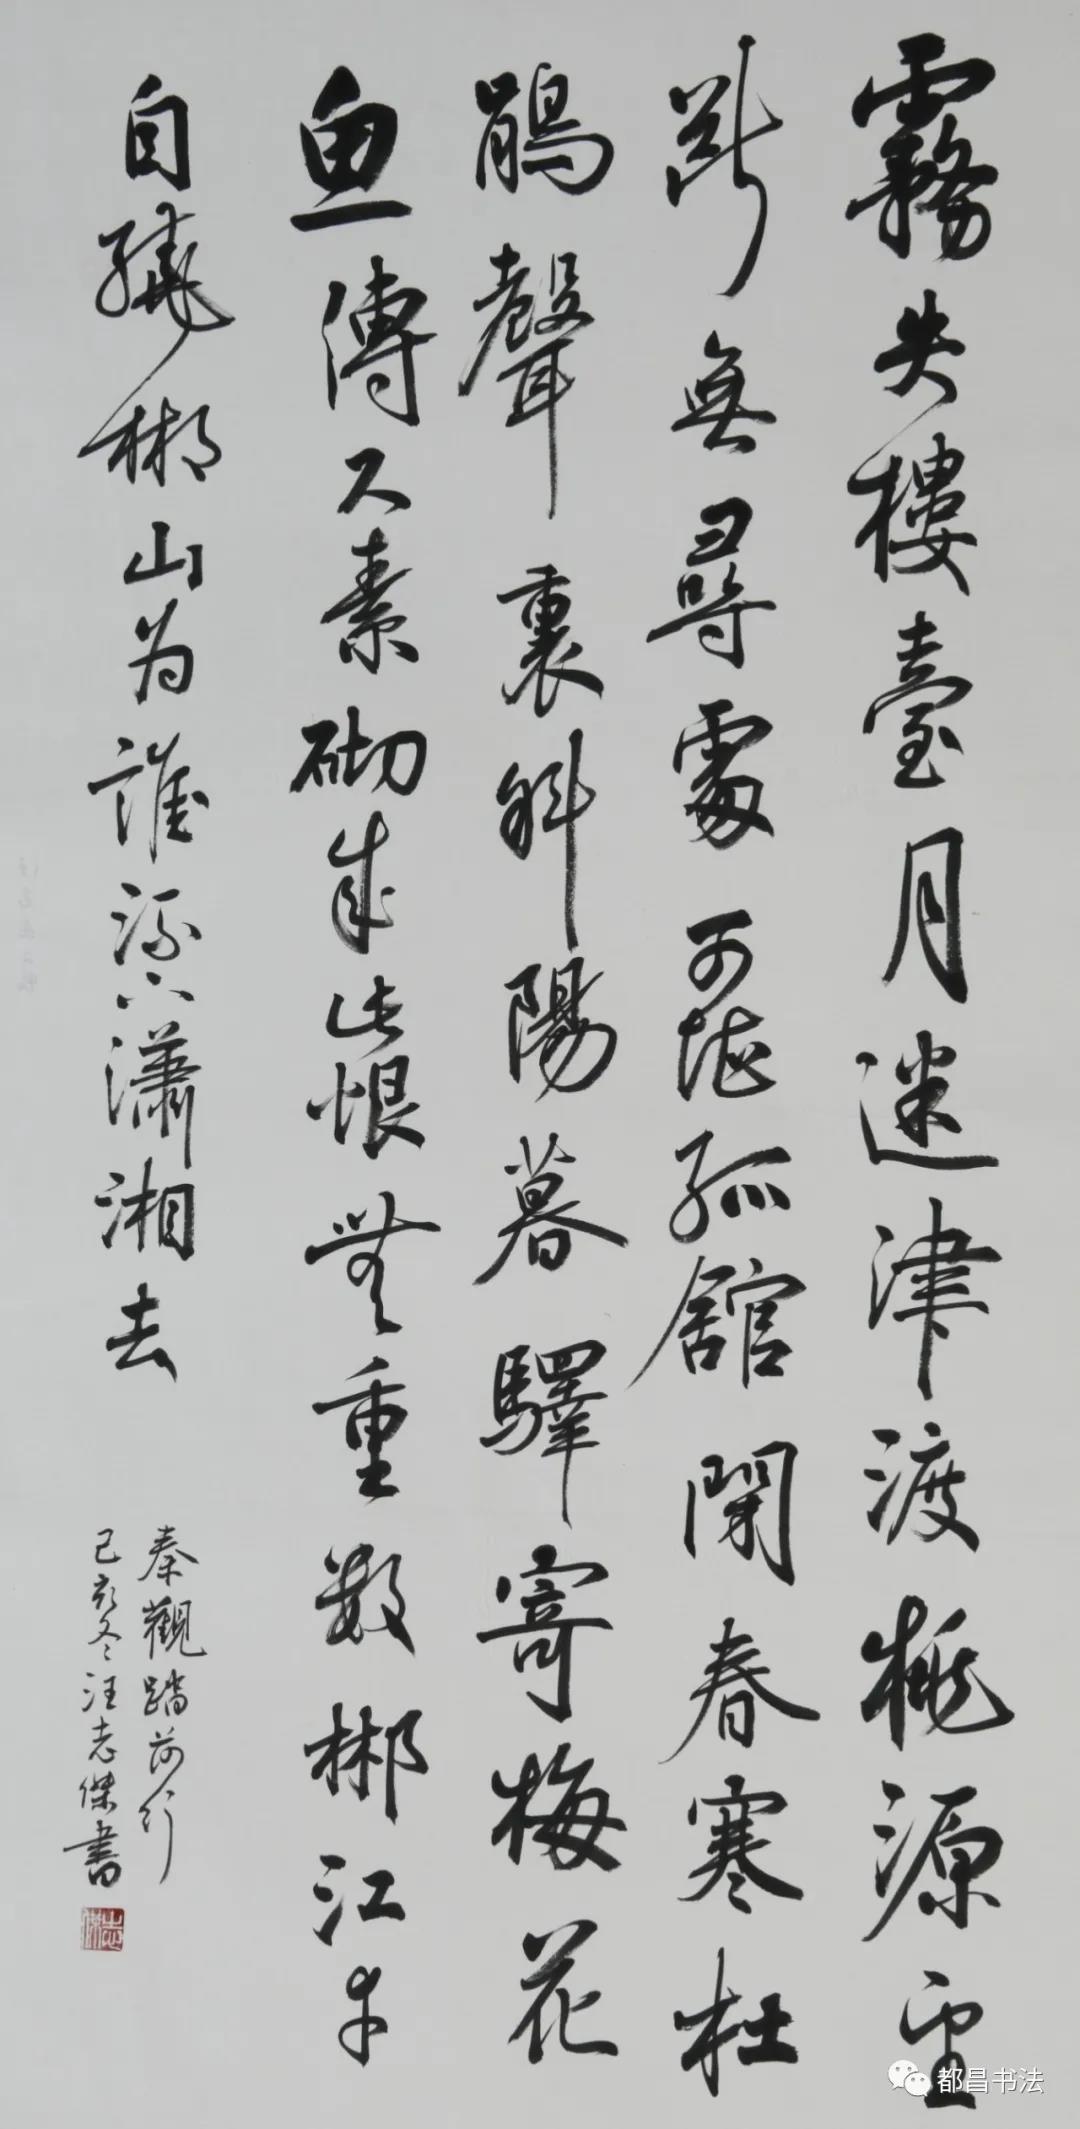 霧失樓臺月迷津渡桃源望
斷無尋處可堪孤館閉春寒杜
鵑聲裏斜陽暮驛寄梅花
鱼傳尺素砌成此恨無重數郴江幸
自繞郴山为誰流下瀟湘去
秦觀踏莎行
己亥冬汪志傑書
志傑
都昌书法